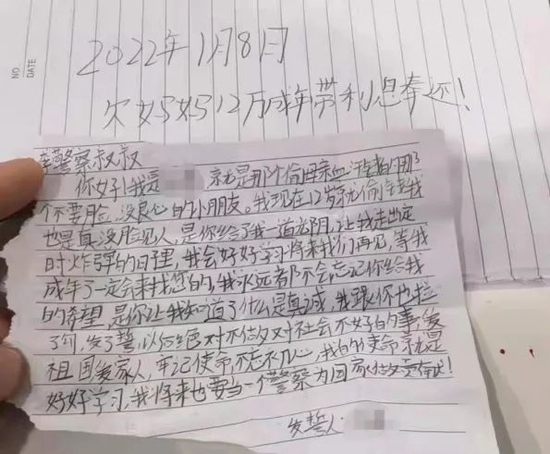 NO
DATE
2022年1月8日
欠妈妈12万成年带利息奉还!
警察叔叔
你好!我是 就是那个偷母亲血汗钱的那
个不要脸、没良心的小朋友。我现在12岁就偷 我
也是真没脸见人,是你给了我一道光阴,让我走出定
时炸弹的日理,我会好好学习将来我们再见,等我
成年了一定会来找您的,我永远都不会忘记你给我
的希望,是你让我知道了什么是真诚,我跟你也拉
了勾,发了誓以后绝对不做对社会不好的事,爱
祖国爱家人,牢记使命不忘初心,我的使命就是
好好学习,我将来也要当一个警察为国家做贡献!
发誓人: